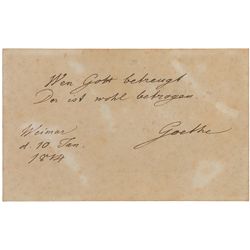 Wen Gott betreugt
Der ist wohl betrogen
Goethe
Weimar
d. 10 Jan.
1814